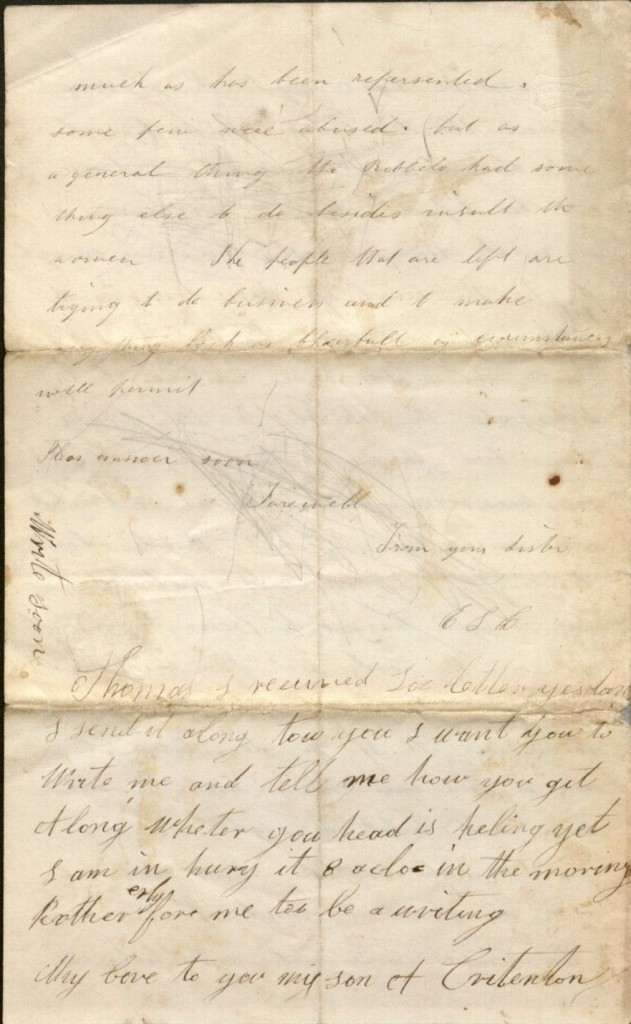 much as has been repersented.
some few were abused. but as
a general thing the Rebbels had some
thing else to do besides insult the
women The people that are left are
trying to do business and to make
every thing look as chearfull as circumstances
will permit
Pleas answer soon
Farewell
From your Sister
E S C
Write soon
Thomas I received Loe letter yesdam
I send it along tow you I want you to
Write me and tell me how you get
Along Wheter you head is heling yet
I am in hury it 8 acloc in the moring
Rother erly fore me too be a writing
My Love to you my son A Critenton